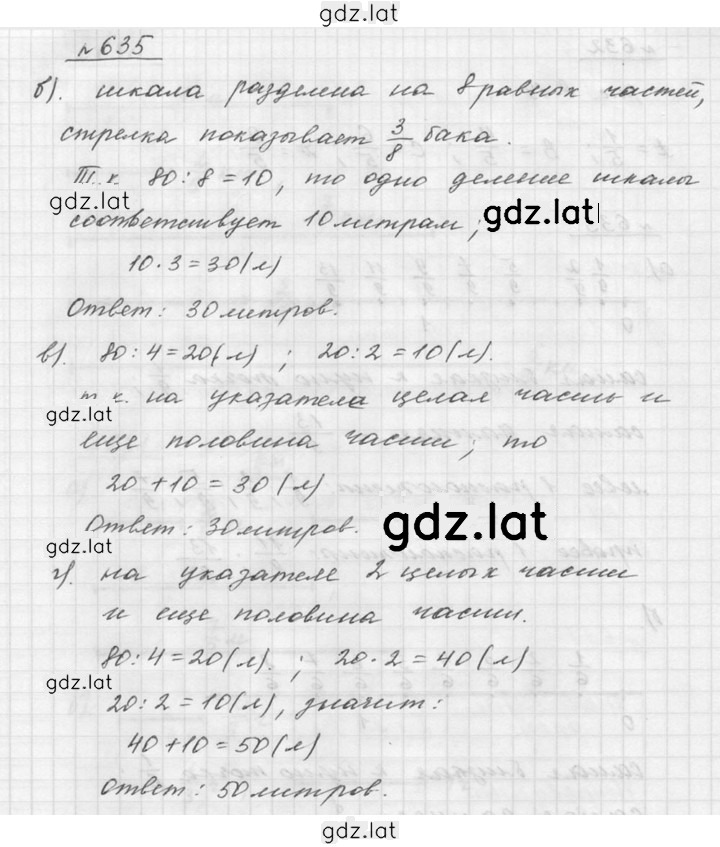 gdz.lat
№ 635
б). шкала разделена на 8 равных частей,
стрелка показывает 3/8 бака.
Т. к. 80 : 8 = 10, то одно деление шкалы
gdz.lat
соответствует 10 литрам; gdz.lat
10 · 3 = 30 (л)
Ответ: 30 литров.
в). 80 : 4 = 20 (л) ; 20 : 2 = 10 (л).
т. к. на указателе целая часть и
gdz.lat
еще половина части, то
20 + 10 = 30 (л)
Ответ: 30 литров. gdz.lat
г). на указателе 2 целых части
и еще половина части.
80 : 4 = 20 (л). ; 20 · 2 = 40 (л)
gdz.lat
20 : 2 = 10 (л), значит:
40 + 10 = 50 (л)
Ответ: 50 литров.
gdz.lat
gdz.lat